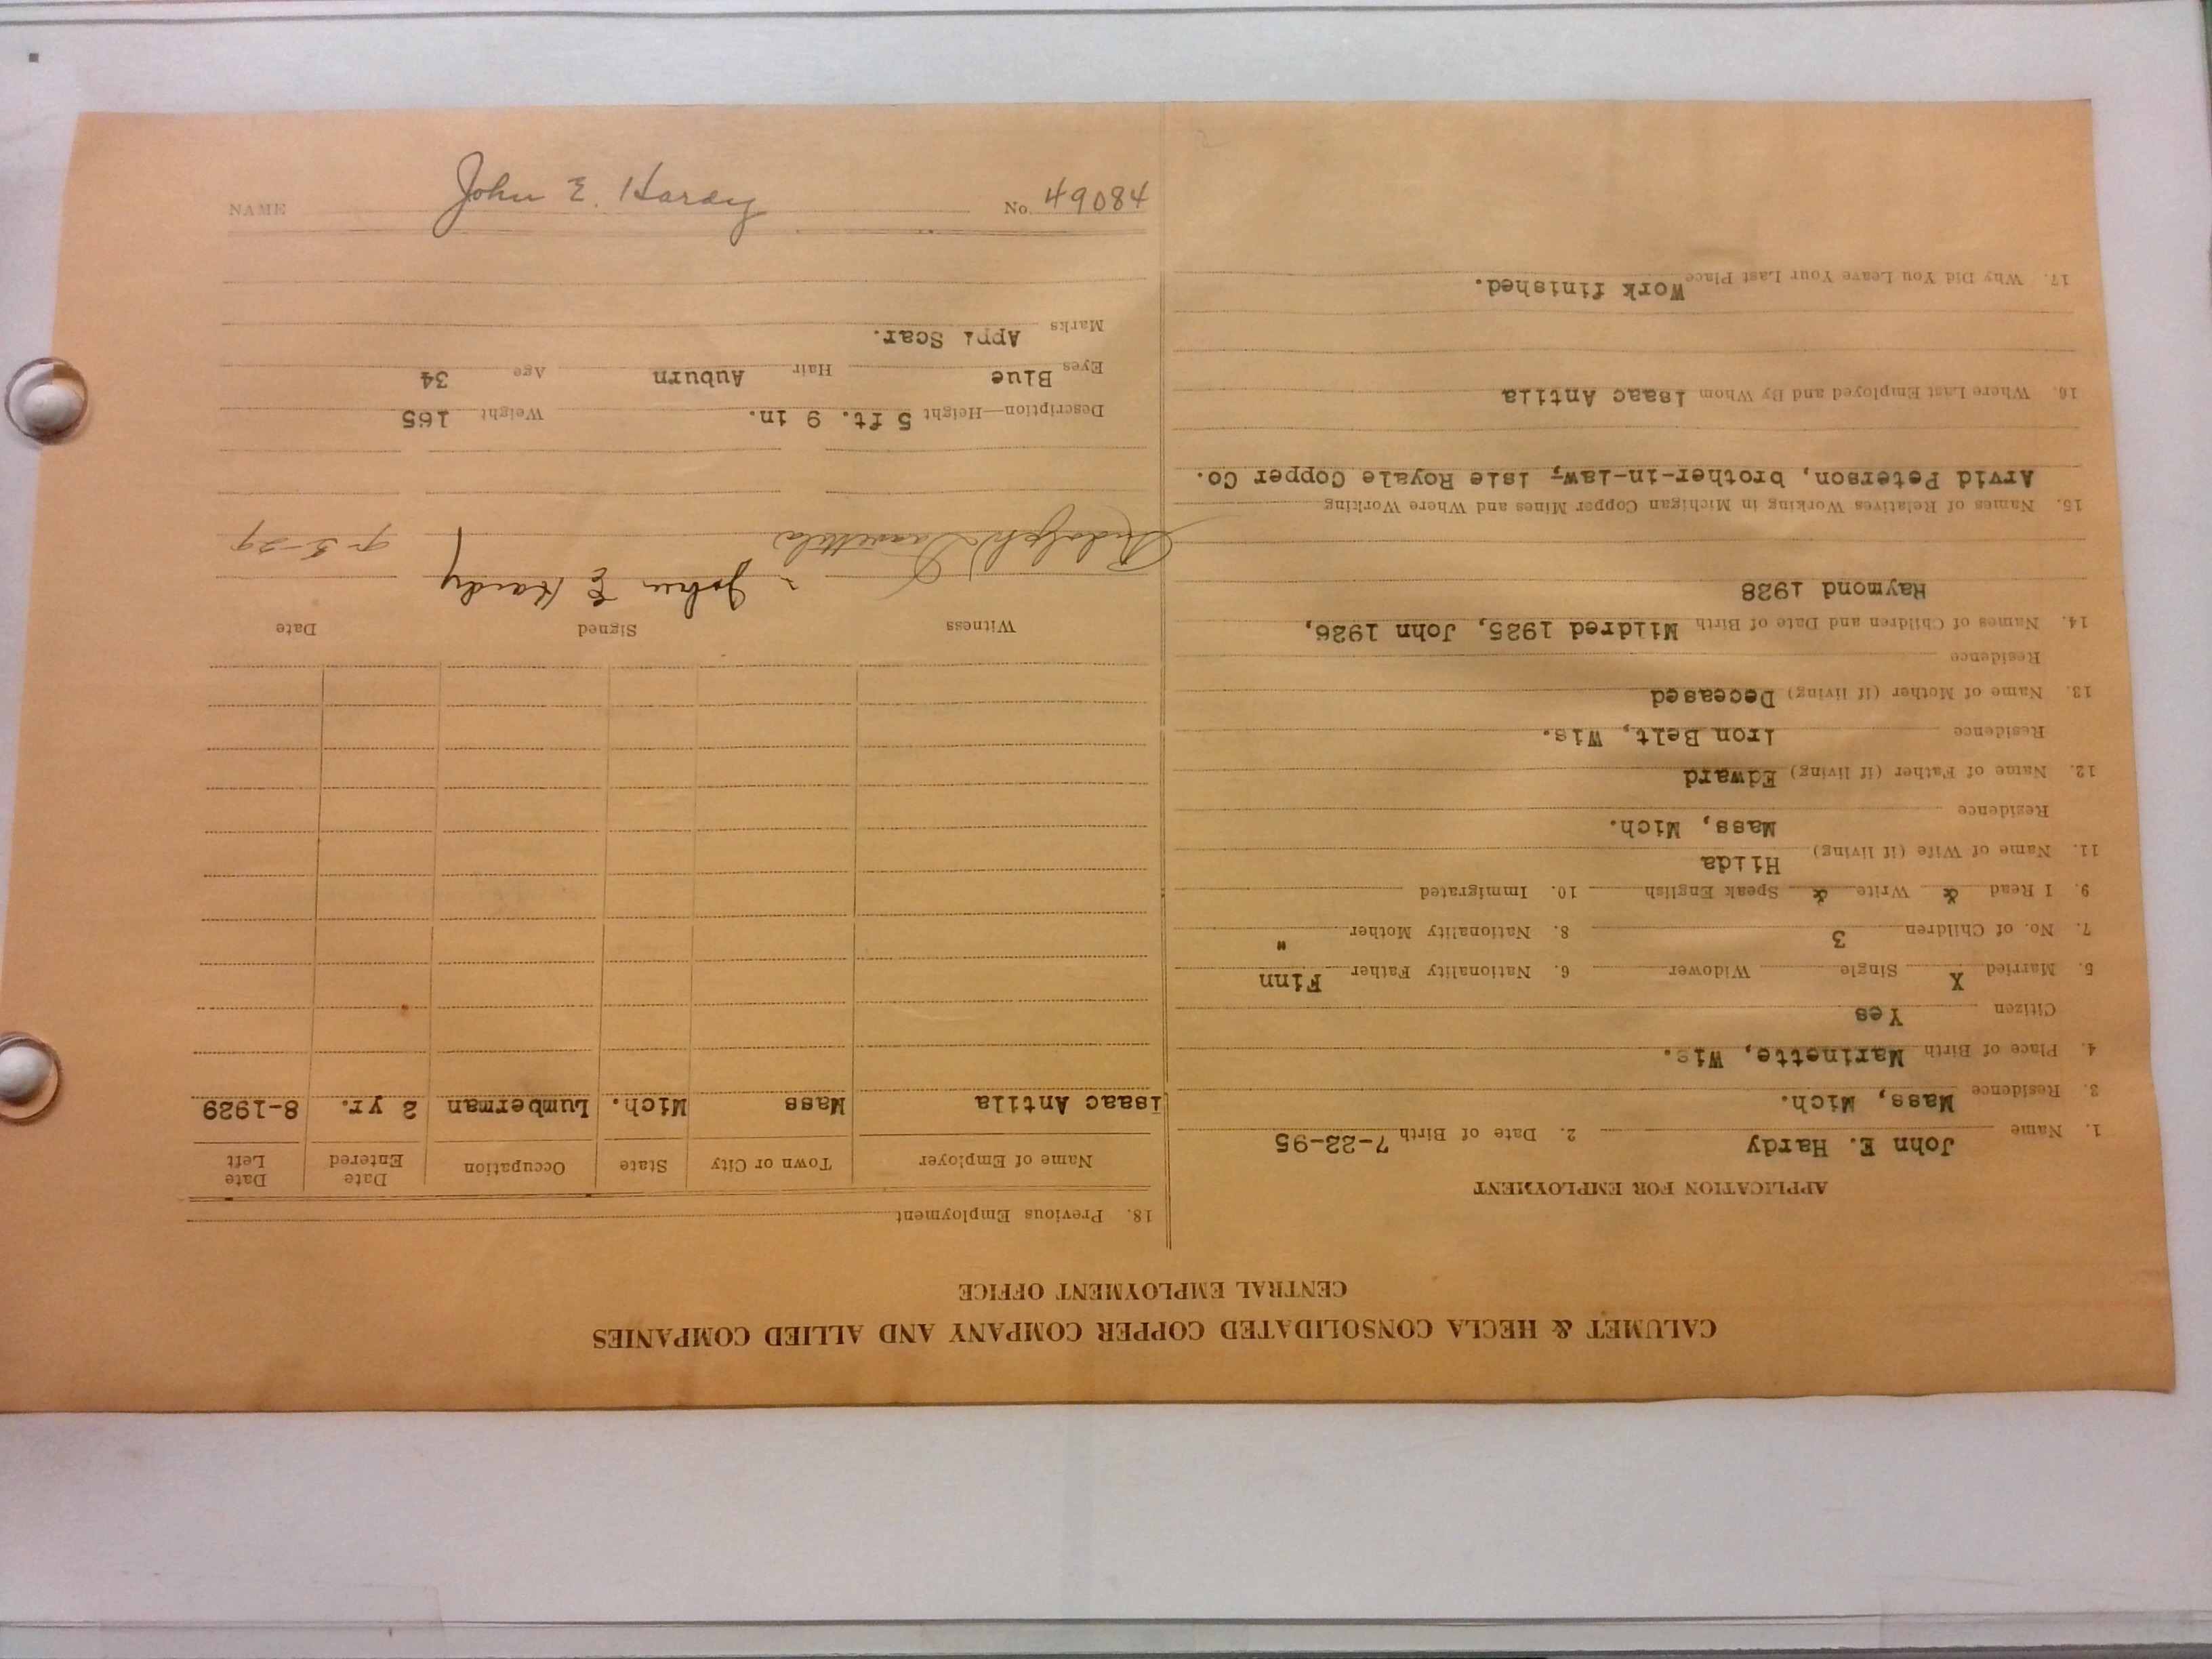 CALUMET & HECLA CONSOLIDATED COPPER COMPANY AND ALLIED COMPANIES
CENTRAL EMPLOYMENT OFFICE
APPLICATION FOR EMPLOYMENT
1. Name John E. Hardy 2. Date of Birth 7-22-95
3. Residence Mass, Mich.
4. Place of Birth Marinette, Wis.
Citizen Yes
5. Married X Single Widower 6. Nationality Father Finn
7. No. of Children 3 8. Nationality Mother "
9. I Read & Write & Speak English 10. Immigrated
11. Name of Wife (if living) Hilda
Residence Mass, Mich.
12. Name of Father (if living) Edward
Residence Iron Belt, Wis.
13. Name of Mother (if living) Deceased
Residence
14. Names of Children and Date of Birth Mildred 1925, John 1926,
Raymond 1928
15. Names of Relatives Working in Michigan Copper Mines and Where Working
Arvid Peterson, brother-in-law, Isle Royale Copper Co.
16. Where Last Employed and By Whom Isaac Antila
17. Why Did You Leave Your Last Place Work finished.
18. Previous Employment
Name of Employer Town or City State Occupation Date Entered Date Left
Isaac Antila Mass Mich. Lumberman 2 yr. 8-1929
Witness Signed Date
John E Hardy
Rudolph 9-5-29
Description—Height 5 ft. 9 in. Weight 165
Eyes Blue Hair Auburn Age 34
Marks App. Scar.
NAME John E. Hardy No. 49084